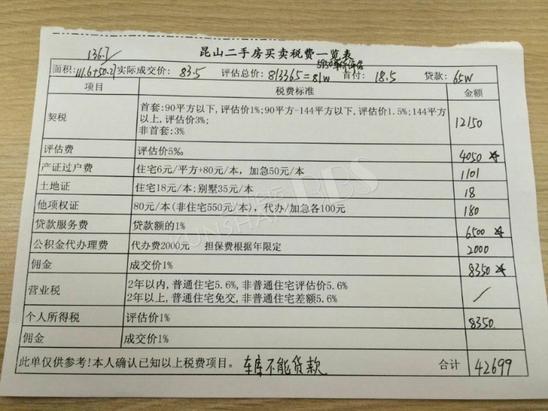 昆山二手房买卖税费一览表
136.7
面积:111.6+50.27 实际成交价: 83.5 评估总价: 813365=81W 首付: 18.5 贷款: 65W
项目 税费标准 金额
契税 首套:90平方以下,评估价1%;90平方-144平方以下,评估价1.5%;144平方以上,评估价3%;
非首套:3% 12150
评估费 评估价5‰ 4050
产证过户费 住宅6元/平方+80元/本，加急50元/本 1101
土地证 住宅18元/本;别墅35元/本 18
他项权证 80元/本(非住宅550元/本)，代办/加急各100元 180
贷款服务费 贷款额的1% 6500
公积金代办理费 代办费2000元 担保费根据年限定 2000
佣金 成交价1% 8350
营业税 2年以内,普通住宅5.6%,非普通住宅评估价5.6%
2年以上,普通住宅免交,非普通住宅差额5.6% /
个人所得税 评估价1% 8350
佣金 成交价1%
此单仅供参考!本人确认已知以上税费项目。 车库不能贷款 合计 42699